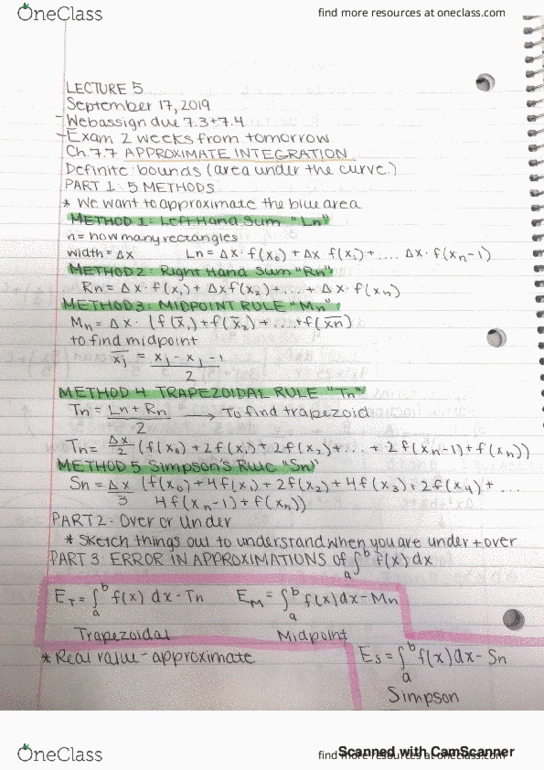 OneClass
find more resources at oneclass.com
LECTURE 5
September 17, 2019
- Webassign due 7.3+7.4
- Exam 2 weeks from tomorrow
Ch.7.7 APPROXIMATE INTEGRATION
Definite: bounds (area under the curve.)
PART 1: 5 METHODS
* We want to approximate the blue area
METHOD 1: Left Hand Sum "Ln"
n = how many rectangles
width = Δx Ln = Δx · f(x₀) + Δx f(x₁) + .... Δx · f(xn-1)
METHOD 2: Right Hand Sum "Rn"
Rn = Δx · f(x₁) + Δx f(x₂) + ... + Δx · f(xn)
METHOD 3: MIDPOINT RULE "Mn"
Mn = Δx · (f(x̄₁) + f(x̄₂) + ... + f(x̄n)
to find midpoint
x̄j = xj - xj - 1 / 2
METHOD 4: TRAPEZOIDAL RULE "Tn"
Tn = Ln + Rn / 2 → To find trapezoid
Tn = Δx/2 (f(x₀) + 2f(x₁) + 2f(x₂) + ... + 2f(xn-1) + f(xn))
METHOD 5: Simpson's Rule "Sn"
Sn = Δx/3 (f(x₀) + 4f(x₁) + 2f(x₂) + 4f(x₃) + 2f(x₄) + ...
4f(xn-1) + f(xn))
PART 2: Over or Under
* Sketch things out to understand when you are under + over
PART 3: ERROR IN APPROXIMATIONS of ∫ₐᵇ f(x) dx
E_T = ∫ₐᵇ f(x) dx - Tn E_M = ∫ₐᵇ f(x) dx - Mn
Trapezoidal Midpoint
* Real value - approximate
E_S = ∫ₐᵇ f(x) dx - Sn
Simpson
OneClass
find more resources at oneclass.com
Scanned with CamScanner